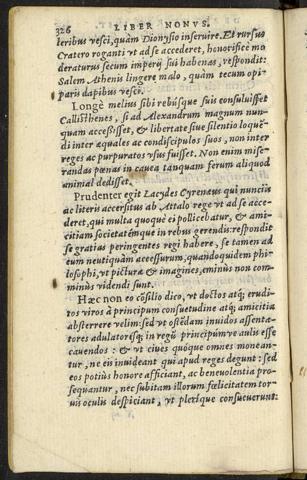 326 LIBER NONVS.
leribus vesci, quàm Dionysio inseruire. Et rursus
Cratero roganti vt ad se accederet, honorificè mo
deraturus secum imperij sui habenas, respondit:
Salem Athenis lingere malo, quàm tecum opi-
paris dapibus vesci.
Longè melius sibi rebúsque suis consuluisset
Callisthenes, si ad Alexandrum magnum nun-
quam accessisset, & libertate siue silentio loquē-
di inter æquales ac condiscipulos suos, non inter
reges ac purpuratos vsus fuisset. Non enim mise-
randas pœnas in cauea tanquam ferum aliquod
animal dedisset.
Prudenter egit Lacydes Cyreneus qui nunciis
ac literis accersitus ab Attalo rege vt ad se acce-
deret, qui multa quoque ei pollicebatur, & ami-
citiam societatémque in rebus gerendis: respondit
se gratias peringentes regi habere, se tamen ad
eum neutiquàm accessurum, quandoquidem phi-
losophi, vt pictura & imagines, eminùs non com-
minùs videndi sunt.
Hæc non eo cōsilio dico, vt doctos atq; erudi-
tos viros à principum consuetudine atq; amicitia
absterrere velim: sed vt ostēdam inuidos assenta-
tores adulatorésq; in regū principúmve aulis esse
cauendos: & vt ciues quóque omnes monean-
tur, ne eis inuideant qui apud reges degunt: sed
eos potiùs honore afficiant, ac beneuolentia pro-
sequantur, nec subitam illorum fœlicitatem tor-
uis oculis despiciant, vt plerique consueuerunt.